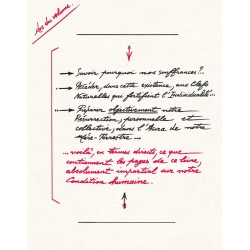 dos du volume
Savoir pourquoi nos souffrances?..
Accéder, dans cette existence, aux Clefs
Naturelles qui fortifient l'Individualité...
Réparer objectivement notre
Résurrection, personnelle et
collective, dans l'Aura de notre
Mère-Terrestre...
... voilà, en termes directs, ce que
contiennent les pages de ce livre,
absolument impartial sur notre
Condition humaine.